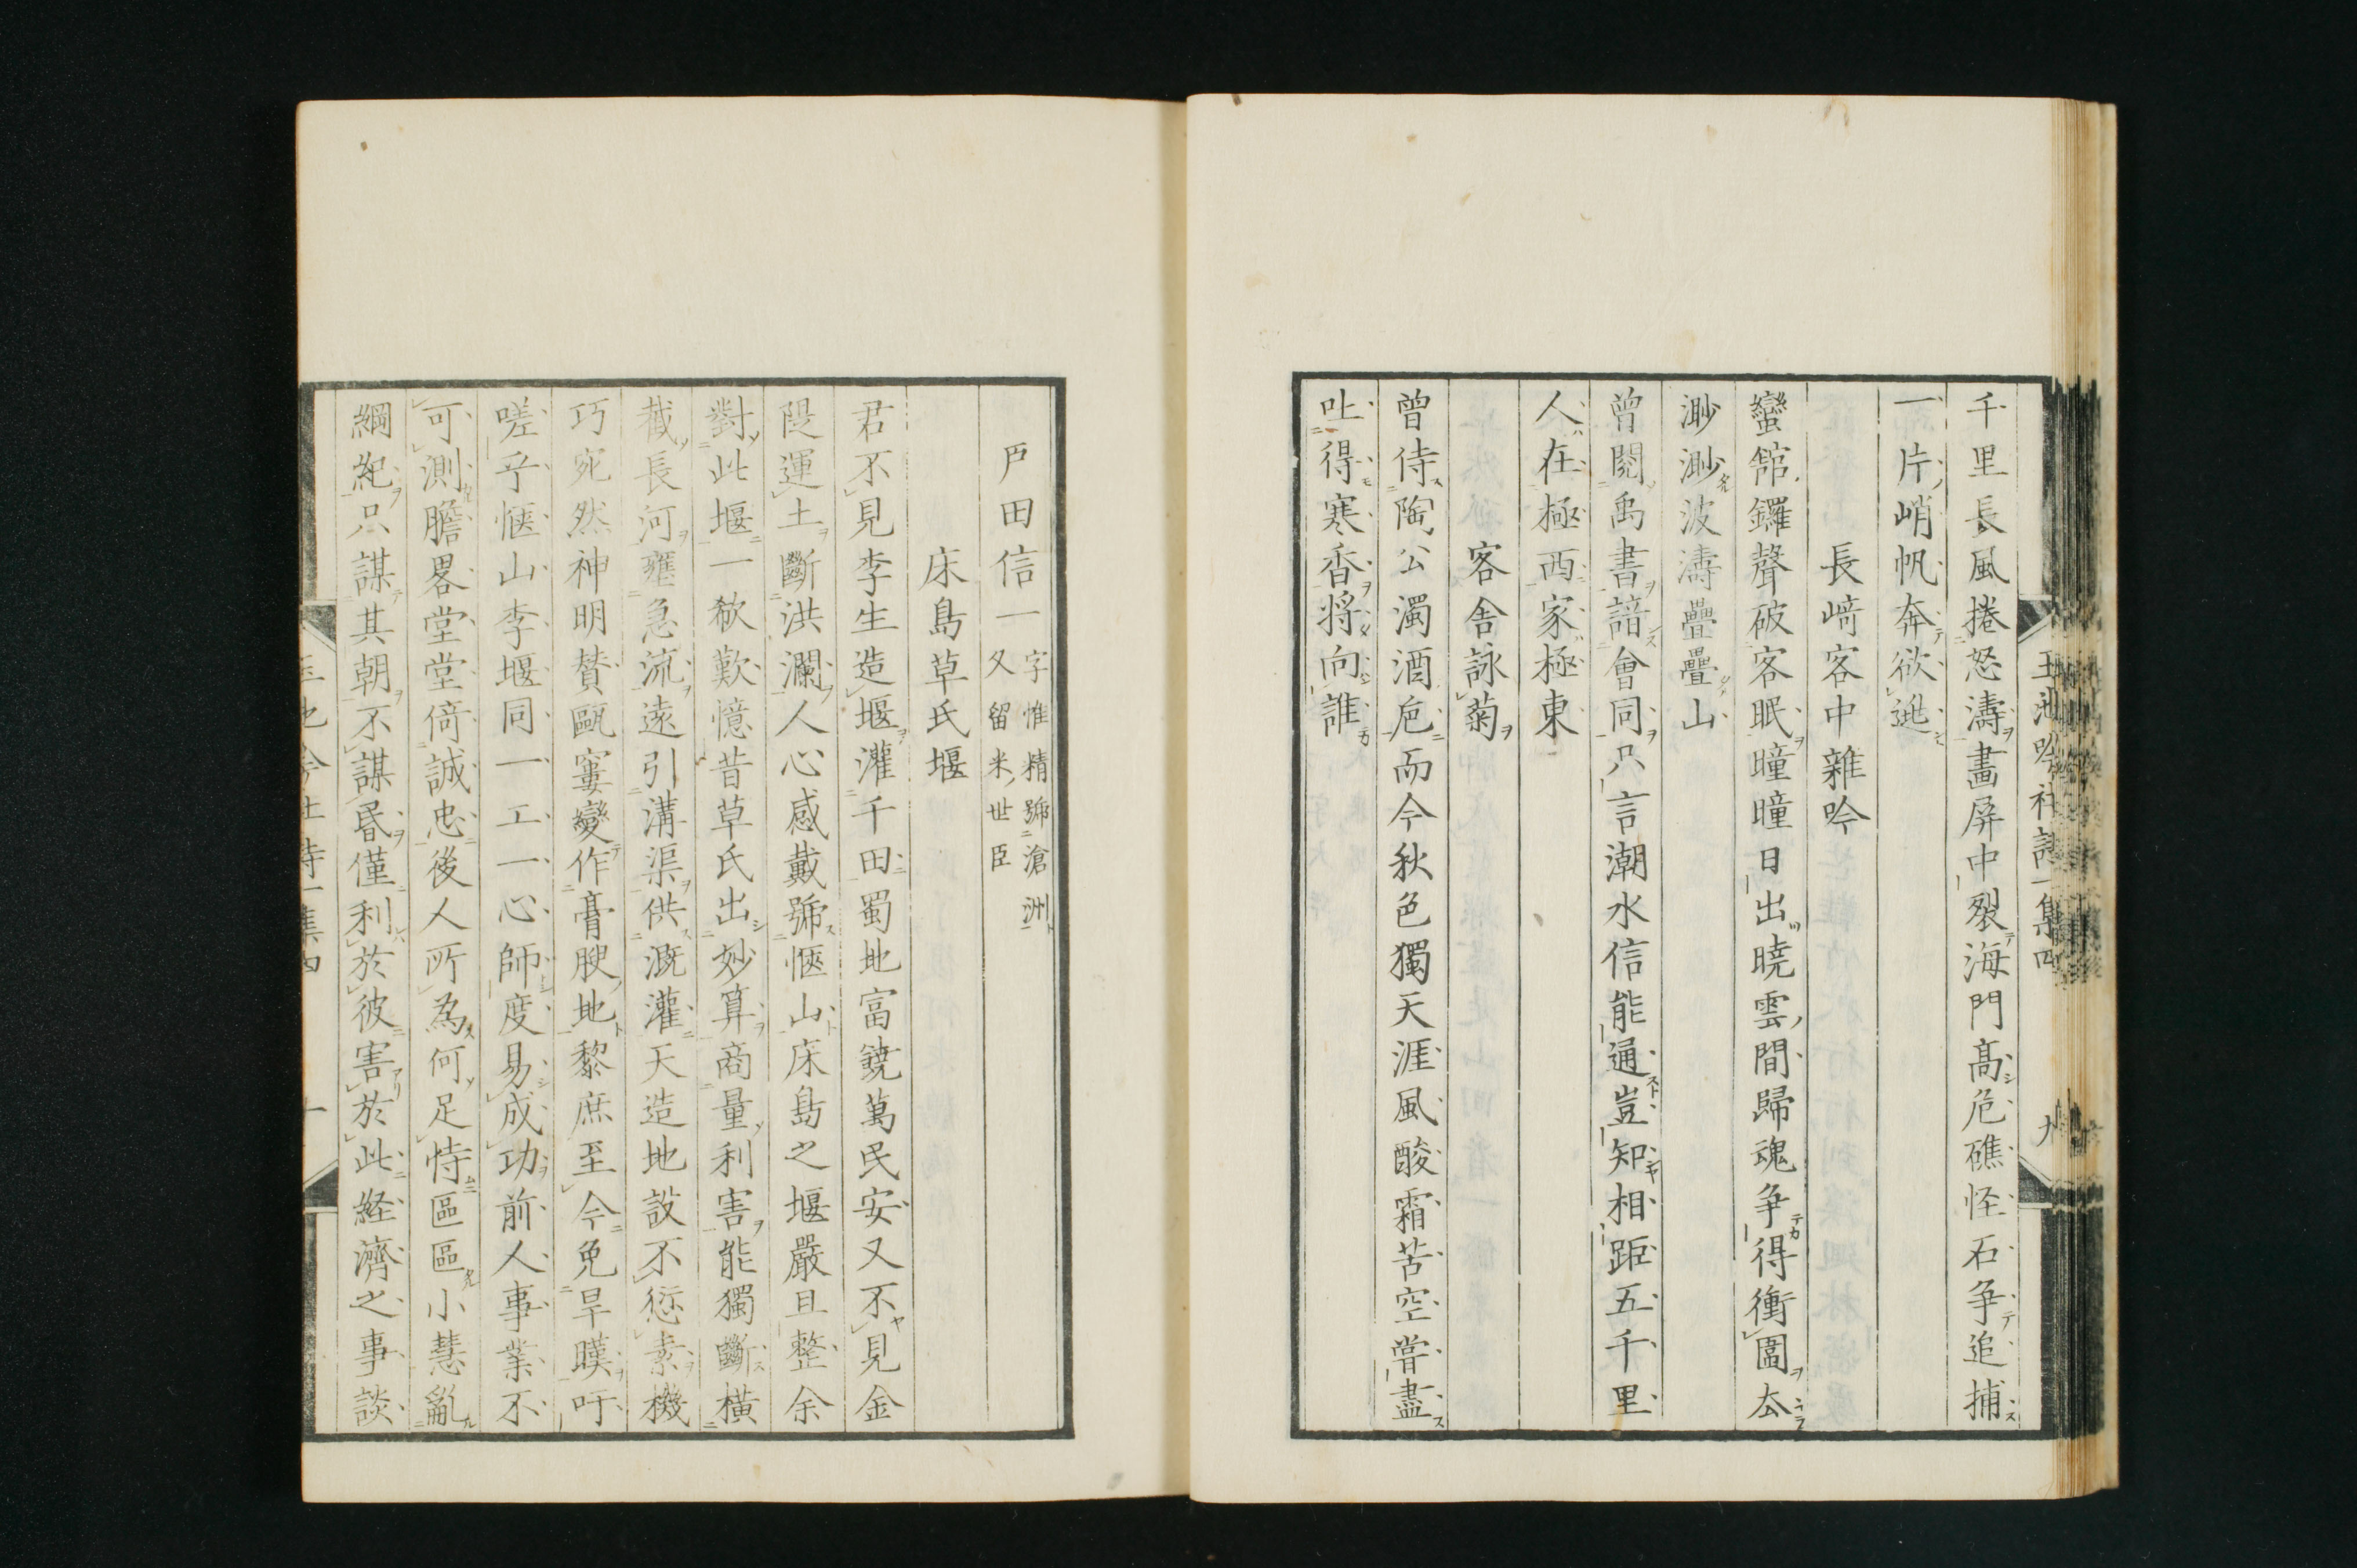 千里長風捲怒濤畫屏中裂海門髙危礁怪石争追捕
一片峭帆奔欲逃
長﨑客中雜吟
蠻舘鑼聲破客眠曈曈日出曉雲間歸魂争得衝圍去
渺渺波濤疊疊山
曾閲禹書諳會同只言潮水信能通豈知相距五千里
人在極西家極東
客舍詠菊
曾侍陶公濁酒巵而今秋色獨天涯風酸霜苦空嘗盡
吐得寒香将向誰
玉池吟社詩一集四
九
戸田信一
字惟精號滄洲
久留米世臣
床島草氏堰
君不見李生造堰灌千田蜀地富饒萬民安又不見金
隄運土斷洪瀾人心感戴號愜山床島之堰嚴且整余
對此堰一欷歎憶昔草氏出妙算商量利害能獨斷橫
截長河壅急流遠引溝渠供溉灌天造地設不愆素機
巧宛然神明賛甌窶變作膏腴地黎庶至今免旱暵吁
嗟乎愜山李堰同一工一心師度易成功前人事業不
可測膽畧堂堂倚誠忠後人所為何足恃區區小慧亂
綱紀只謀其朝不謀昏僅利於彼害於此経濟之事談
玉池吟社詩一集四
十